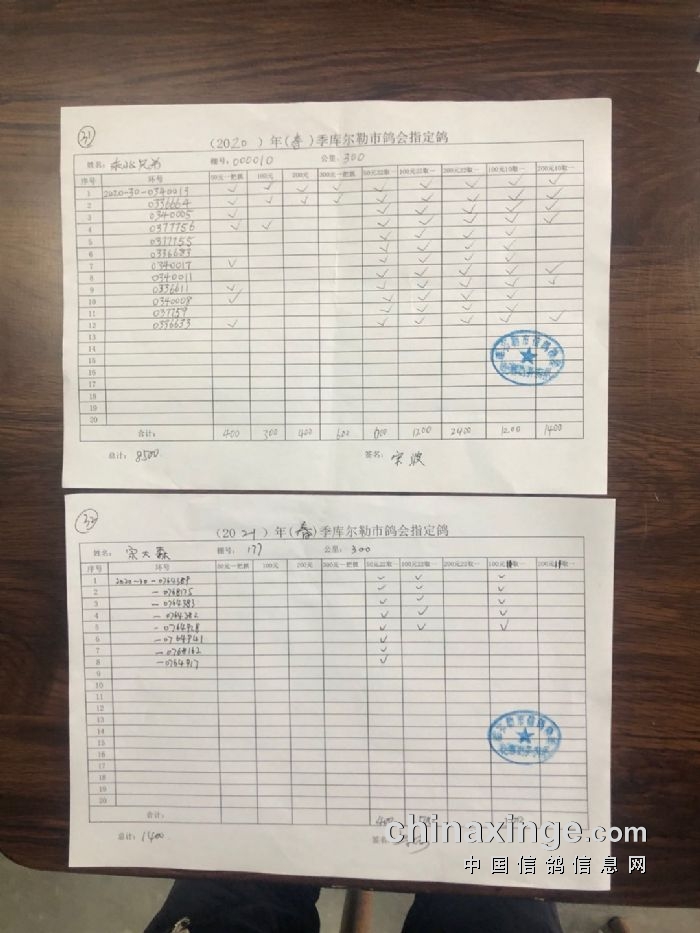 31
(2020)年(春)季库尔勒市鸽会指定鸽
姓名: 棚号: 000010 公里: 300
序号 环号 50元一把抓 100元 200元 300元一把抓 50元22取一 100元22取一 200元22取一 100元10取一 200元10取一
1 2020-30-0340013 ✓ ✓ ✓ ✓ ✓ ✓ ✓ ✓ ✓
2 0336664 ✓ ✓ ✓ ✓ ✓ ✓ ✓ ✓ ✓
3 0340005 ✓ ✓ ✓ ✓ ✓ ✓
4 0377756 ✓ ✓ ✓ ✓ ✓ ✓ ✓
5 0377755 ✓ ✓ ✓ ✓
6 0336683 ✓ ✓ ✓ ✓
7 0340017 ✓ ✓ ✓ ✓ ✓ ✓
8 0340011 ✓ ✓ ✓ ✓ ✓
9 0336611 ✓ ✓ ✓ ✓ ✓
10 0340008 ✓ ✓ ✓ ✓ ✓
11 037759 ✓ ✓ ✓ ✓
12 0336633 ✓ ✓ ✓ ✓ ✓ ✓
13
14
15
16
17
18
19
20
合计: 400 300 400 600 600 1200 2400 1200 1400
总计: 8500 签名: 宋波
33
(2021)年(春)季库尔勒市鸽会指定鸽
姓名: 宋大磊 棚号: 177 公里: 300
序号 环号 50元一把抓 100元 200元 300元一把抓 50元22取一 100元22取一 200元22取一 100元 取一 200元 取一
1 2020-30-0764389 ✓ ✓ ✓
2 -0768175 ✓ ✓ ✓
3 -0764383 ✓ ✓ ✓
4 -0764382 ✓ ✓ ✓
5 -0764928 ✓ ✓ ✓
6 -0764941 ✓
7 -0768162 ✓
8 -0764917 ✓
9
10
11
12
13
14
15
16
17
18
19
20
合计: 400
总计: 1400 签名:
chinaxinge.com
中国信鸽信息网